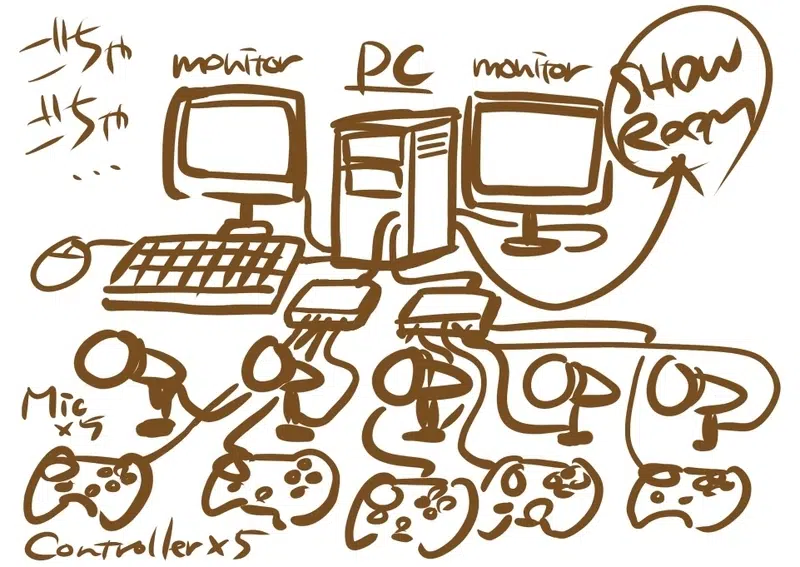 ごちゃ
ごちゃ
...
monitor
PC
monitor
SHOW
ROOM
Mic
x5
Controller x5